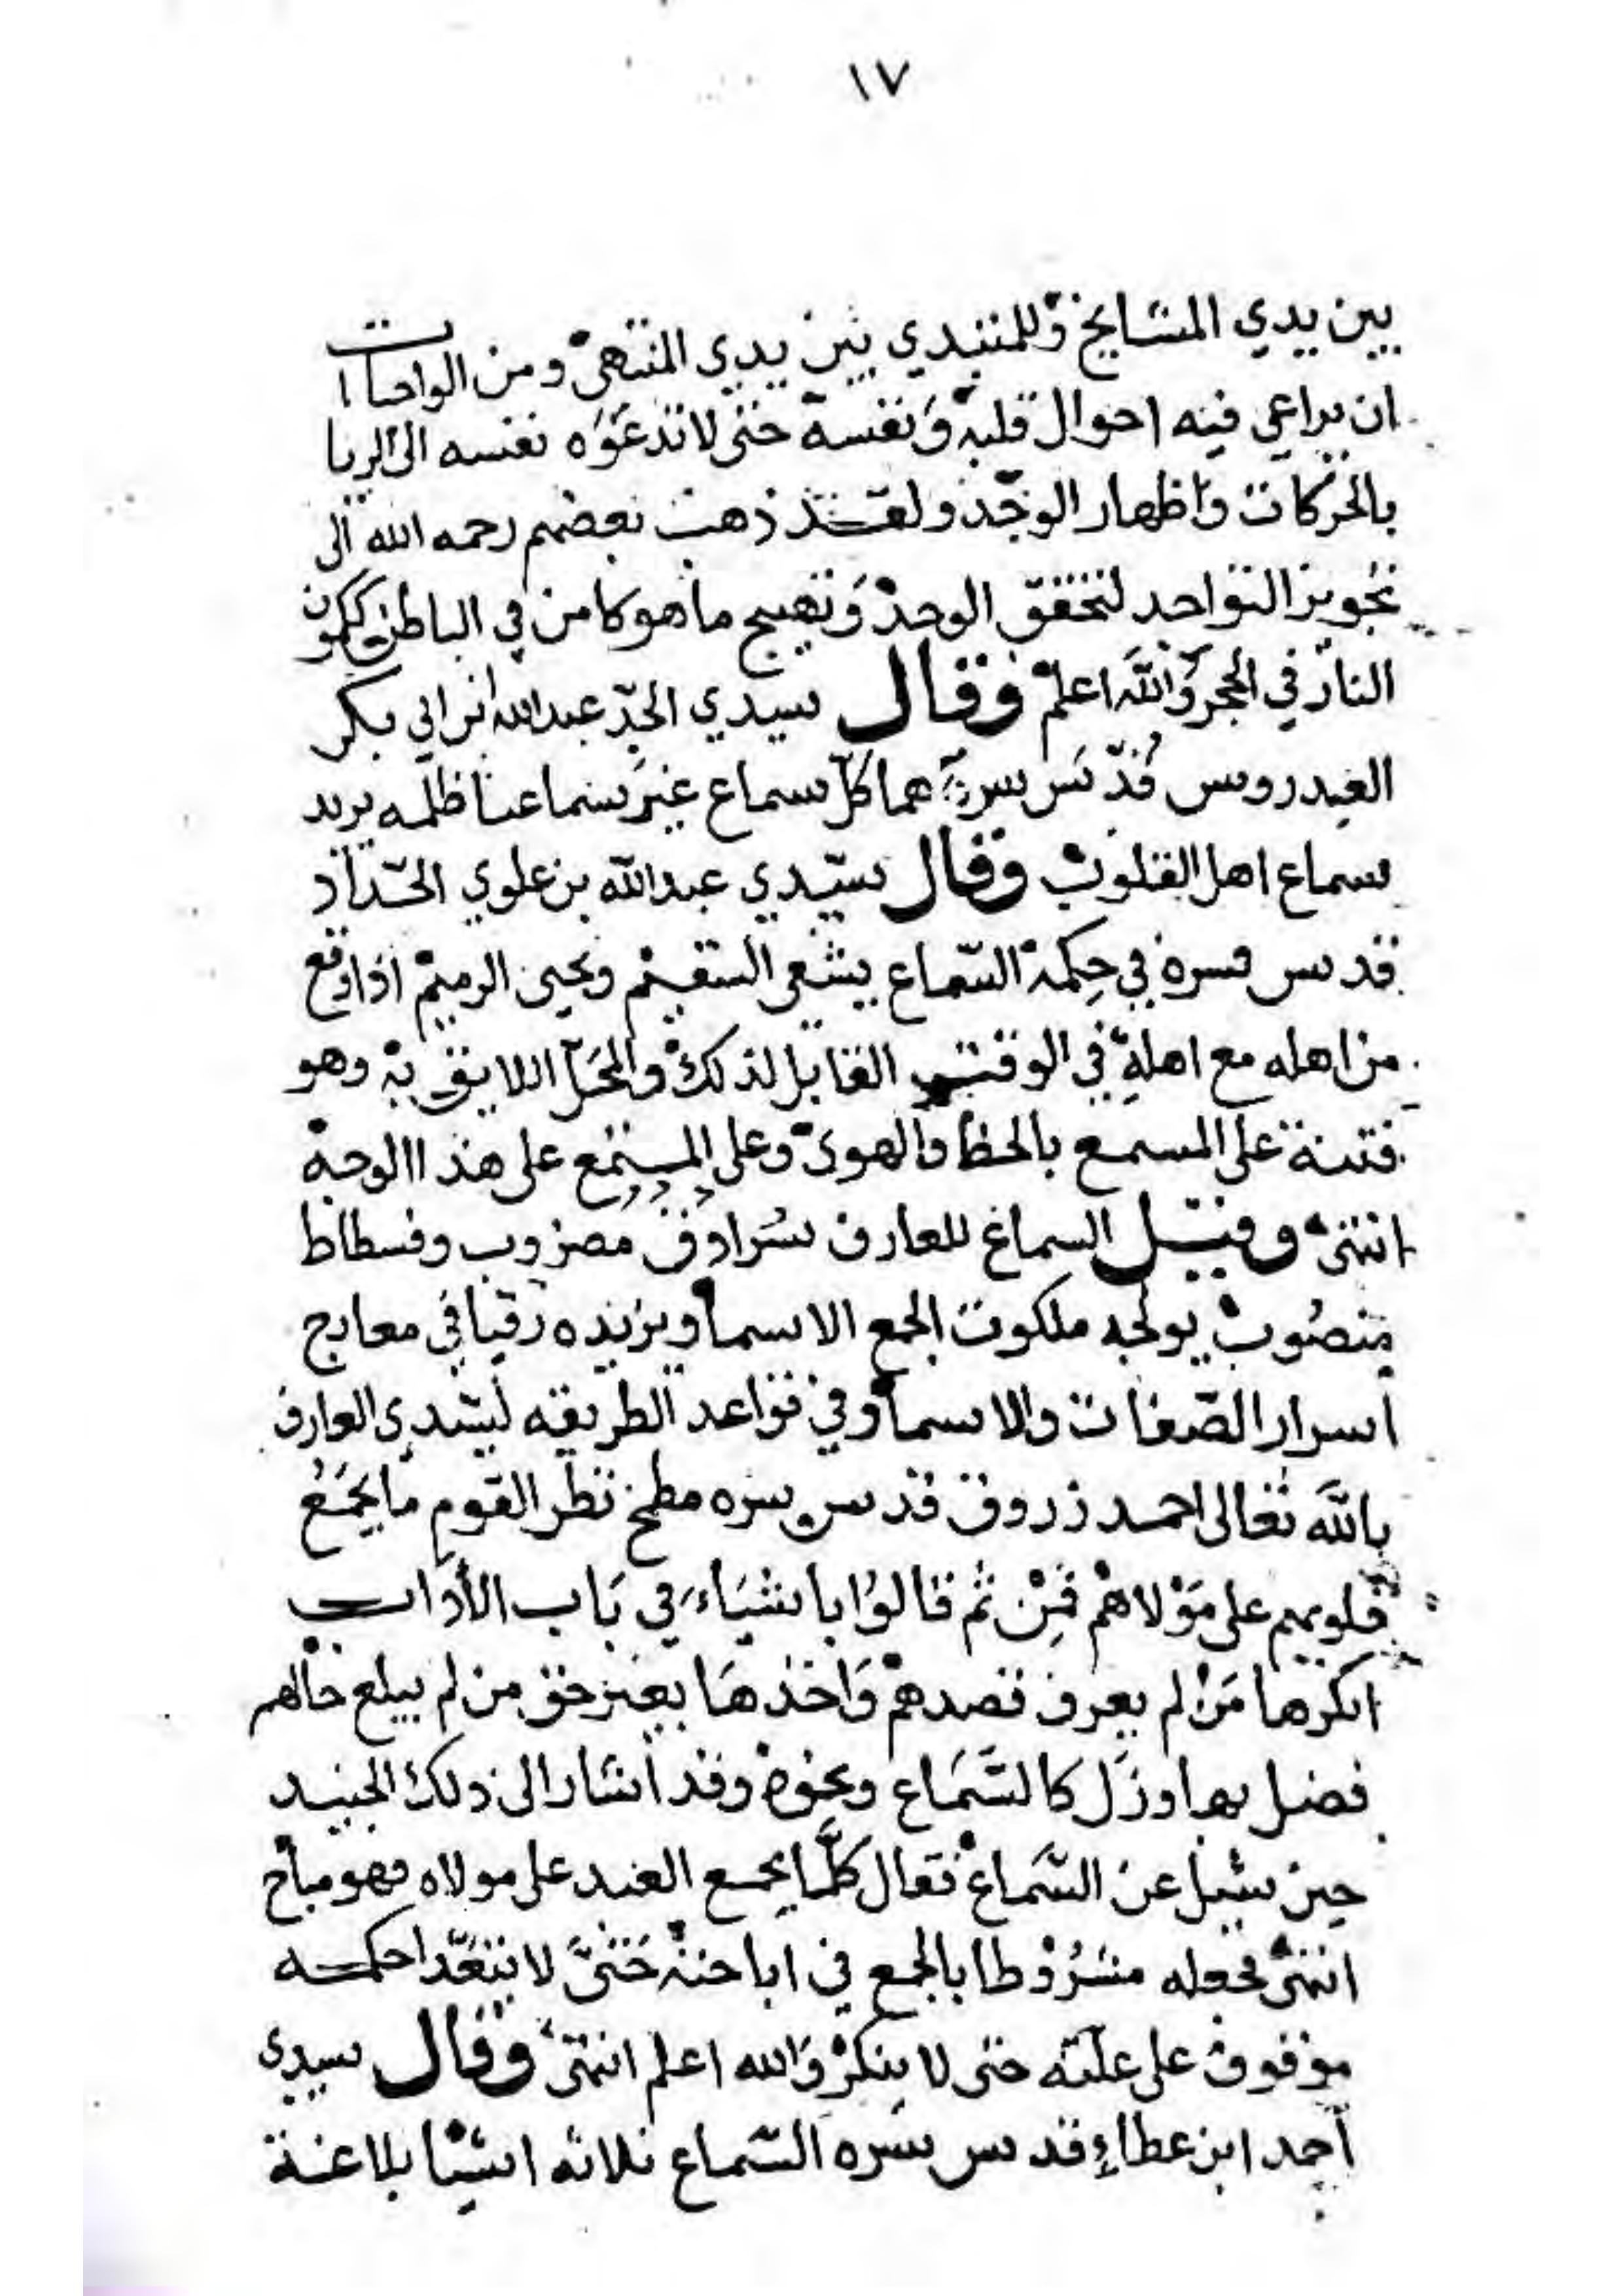 ١٧
بين يدي المشايخ وللمبتدي بين يدي المنتهى ومن الواجبات
ان يراعي فيه احوال قلبه وَنفسه حتى لا تدعَوَه نفسه الى الريا
بالحركات واظهار الوجد ولقد ذهب بعضهم رحمه الله الى
تجويز التواجد لتحقق الوجد وَتهييج ما هو كامن في الباطن ككمون
النار في الحجر وَالله اعلم وقال سيدي الجدّ عبدالله ابن ابي بكر
العيدروس قُدّسَ سرهما كلّ سماع غير سماعنا ظلمه يريد
سماع اهل القلوب وقال سيّدي عبدالله بن علوي الحدّاد
قدس سره في حِكمة السّماع يشفى السقيم ويحيى الرميم اذا وقع
من اهله مع اهلهِ في الوقت القابل لذلك والمحَلّ اللايق به وهو
فتنة على المسمع بالحظ والهوى وعلى المستمع على هذا الوجه
انتهى وقيل السماع للعارف سُرادق مضروب وفسطاط
منصُوب يولجه ملكوت الجمع الاسما ويزيده رقيا في معارج
اسرار الصّفات والاسما وفي قواعد الطريقه لسيّدي العارف
بالله تعالى احمد زروق قدس سره مطمح نظر القوم ما يجَمَعُ
قلوبهم على مَوْلاهمْ فمِنْ ثم قالوُا باشيَاء في بَاب الأدَاب
انكرها مَنْ لم يعرف قصدهمْ وَاخذهَا بغير حق من لم يبلغ حالهم
فضل بها وزَل كالسَّمَاع ونحوه وقد اشار الى ذلك الجنيد
حين سئل عن السَّمَاع فقال كلّما يجمع العبد على مولاه فهو مباح
انتهى فجعله مشرُوْطا بالجمع في اباحته حَتىَّ لا يتعَدّا حكمه
موقوف على علته حتى لا ينكر وَالله اعلم انتهى وقال سيدي
أحمد ابن عطاءِ قدس سره السّماع ثلاثه اشيا بلاغة